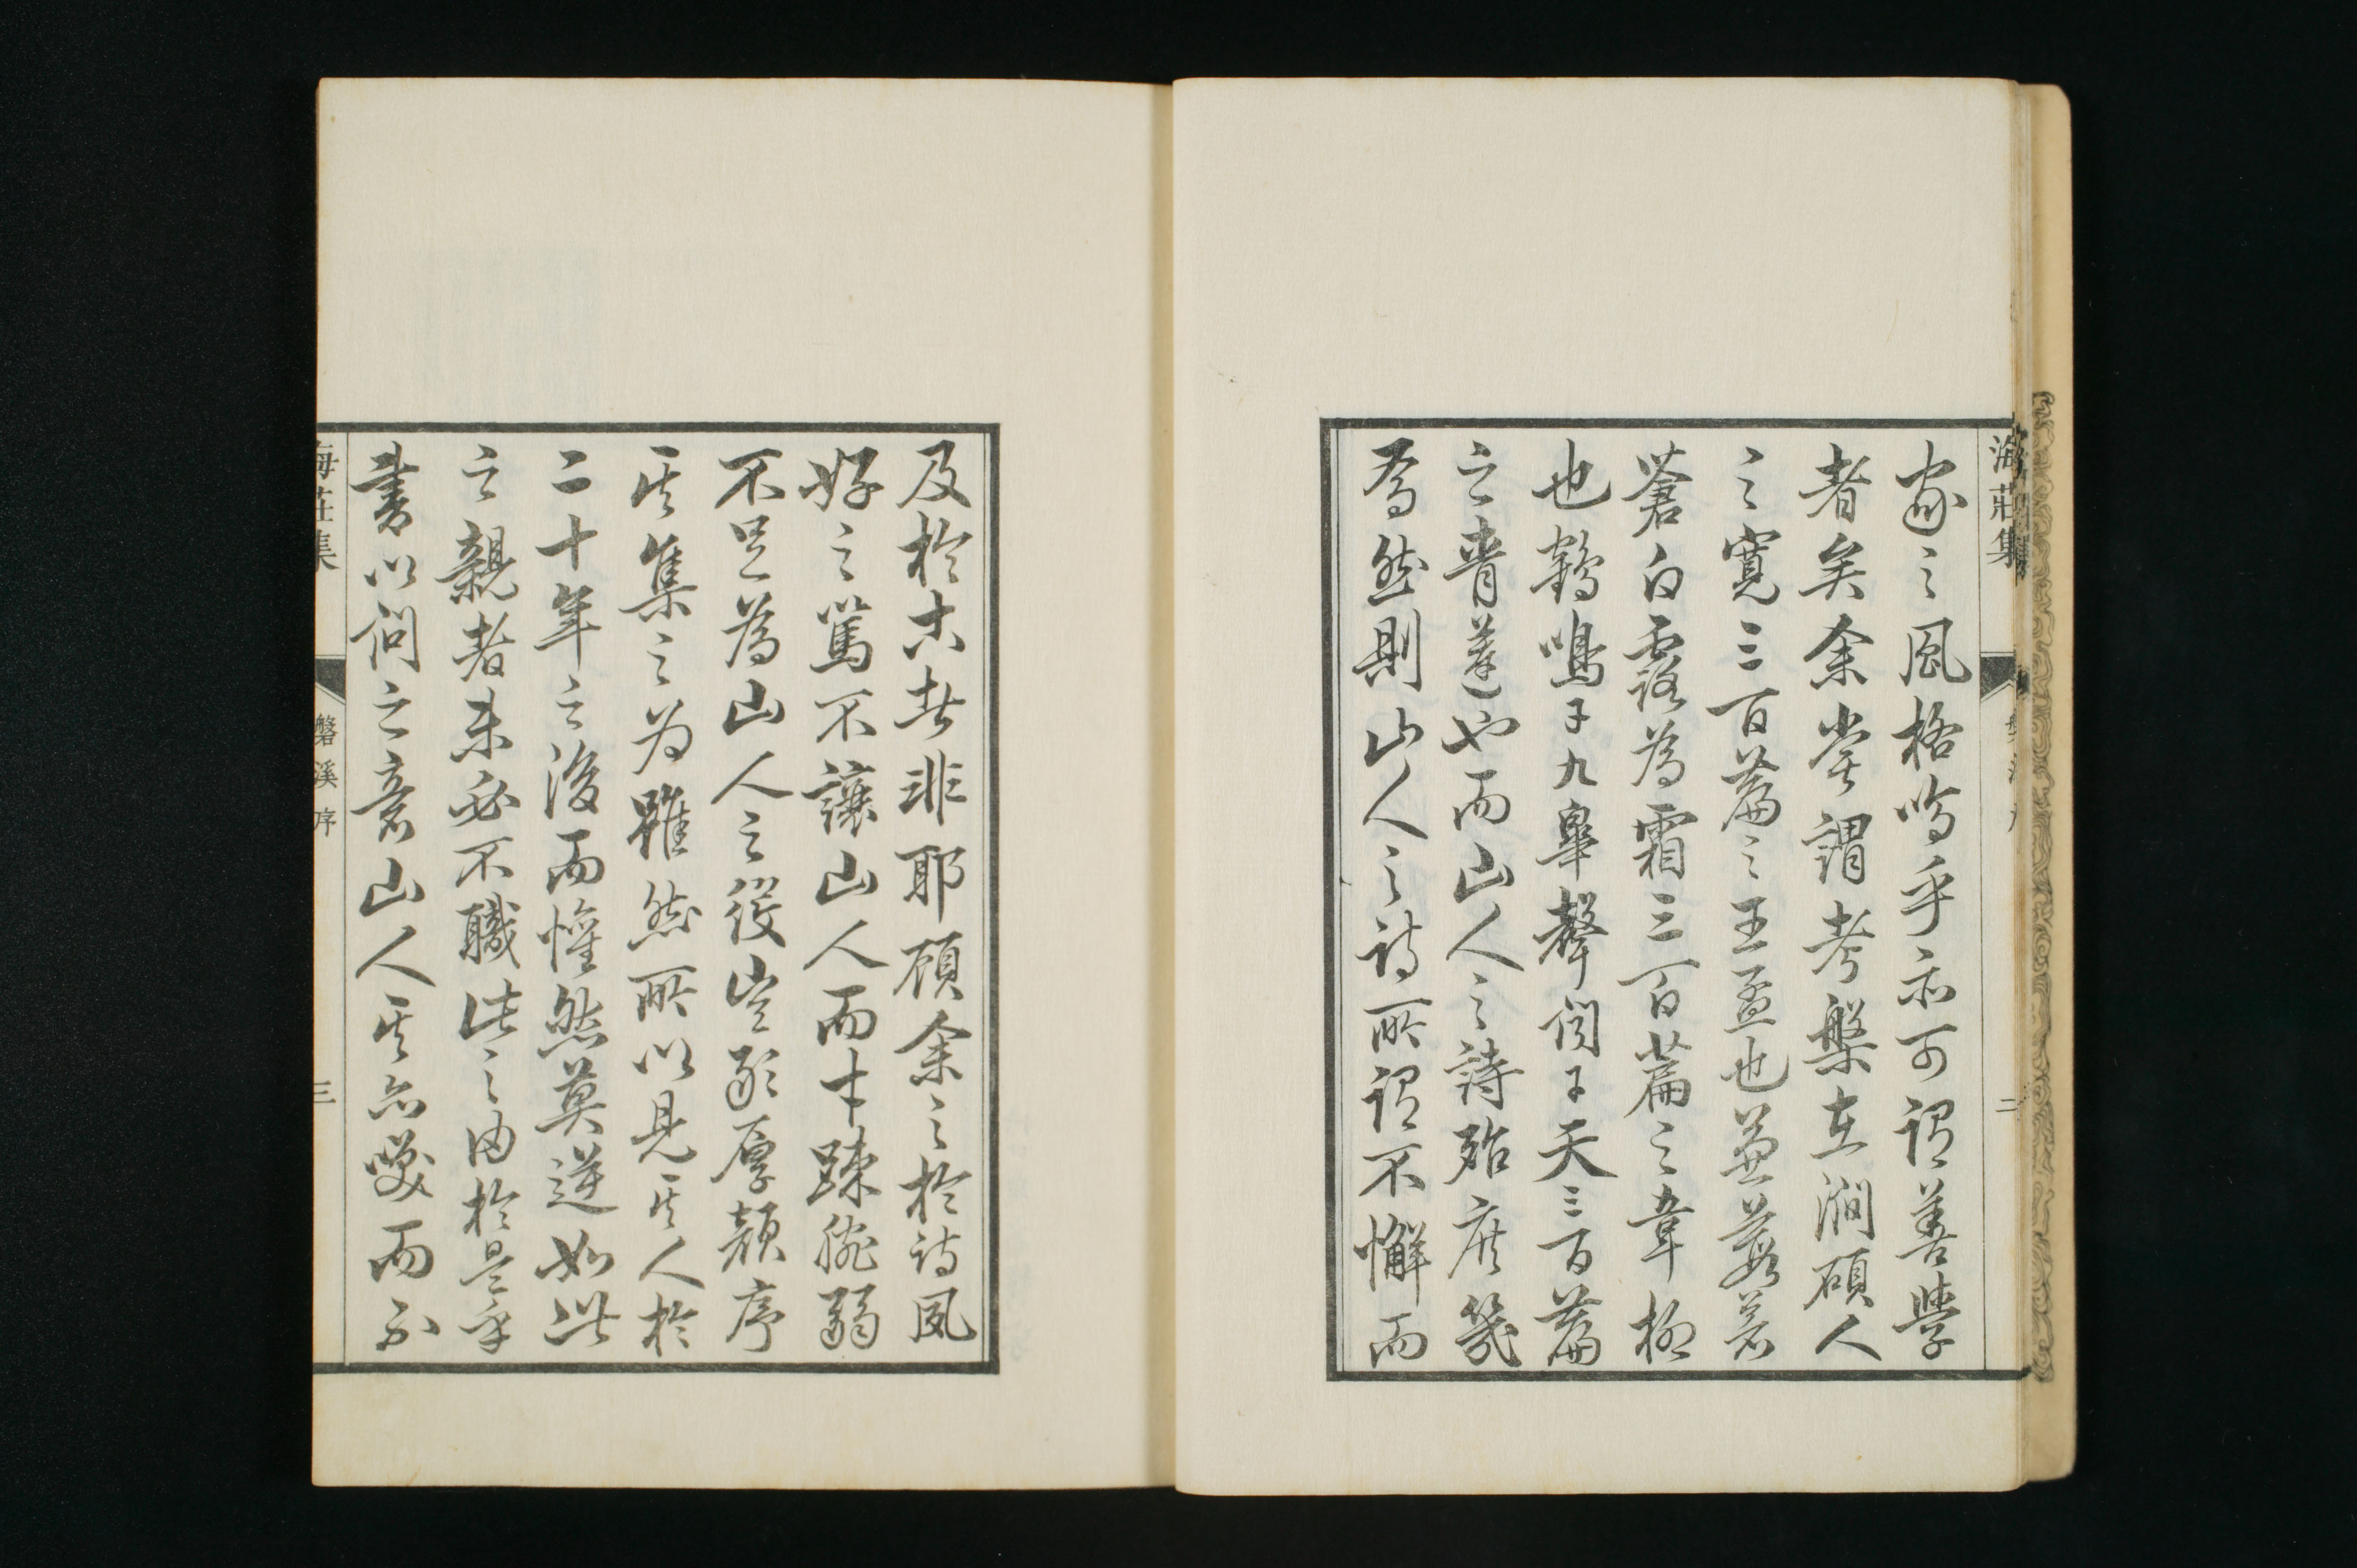 海莊集
二
家之風格嗚乎亦可謂善學
者矣余嘗謂考槃在澗碩人
之寬三百篇之王孟也蒹葭蒼
蒼白露為霜三百篇之韋柳
也鶴鳴于九皐聲聞于天三百篇
之青蓮也而山人之詩殆庶幾
焉然則山人之詩所謂不懈而
及於古者非耶顧余之於詩夙
好之篤不讓山人而才疎腕弱
不足為山人之役豈敢厚顏序
其集之為雖然所以見其人於
二十年之後而懽然莫逆如此
之親者未必不職此之由於是乎
書以問之意山人其亦笑而不
海莊集
磐溪序
三